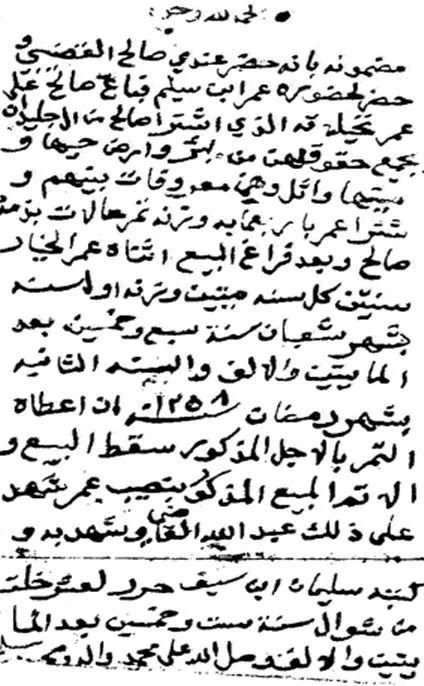 الحمد لله وحده
مضمونه بانه حضر عندي صالح الغنصي و
حضر لحضوره عمر ابن سليم فباع صالح على
عمر نخيله الذي اشترا صالح من
بجميع حقوقهن من بئر وارض حيها و
ميتها واثل وهي معروفات بينهم و
شترا عمر باربعمايه وزنه تمر حالات بذمة
صالح وبعد فراغ البيع اثناه عمر الخيار
سنتين كل سنه ميتين وزنه اوله سنه
بشهر شعبان سنة سبع وخمسين بعد
المايتين والالف والسنه الثانيه
بشهر رمضان سنة ١٢٥٨ ان اعطاه
التمر بالاجل المذكور سقط البيع و
الا تم البيع المذكور بنصيب عمر شهد
على ذلك عبد الله وشهد به و
كتبه سليمان ابن سيف حرر لعشر خلت
من شوال سنة ست وخمسين بعد الما
يتين والالف وصل الله على محمد واله وصحبه وسلم